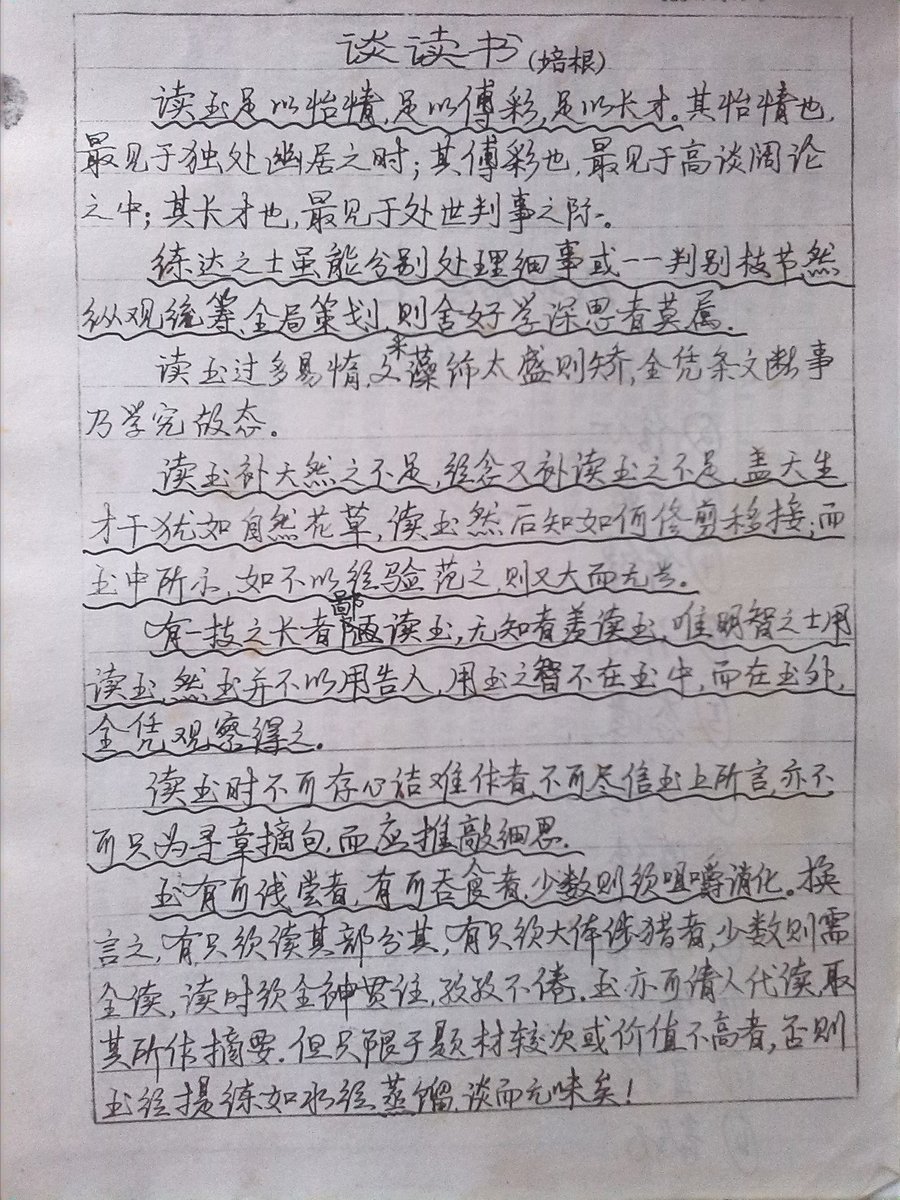 谈读书(培根)
读书足以怡情,足以傅彩,足以长才。其怡情也,
最见于独处幽居之时;其傅彩也,最见于高谈阔论
之中;其长才也,最见于处世判事之际。
练达之士虽能分别处理细事或一一判别枝节,然
纵观统筹,全局策划,则舍好学深思者莫属.
读书过多易惰,文采藻饰太盛则矫,全凭条文断事
乃学究故态。
读书补天然之不足,经念又补读书之不足,盖天生
才干犹如自然花草,读书然后知如何修剪移接;而
书中所示,如不以经验范之,则又大而无当。
有一技之长者鄙读书,无知者羡读书,唯明智之士用
读书,然书并不以用告人,用书之智不在书中,而在书外,
全凭观察得之。
读书时不可存心诘难作者,不可尽信书上所言,亦不
可只为寻章摘句,而应推敲细思.
书有可浅尝者,有可吞食者,少数则须咀嚼消化。换
言之,有只须读其部分其,有只须大体涉猎者,少数则需
全读,读时须全神贯注,孜孜不倦.书亦可请人代读,取
其所作摘要.但只限于题材较次或价值不高者,否则
书经提练如水经蒸馏,谈而无味矣!